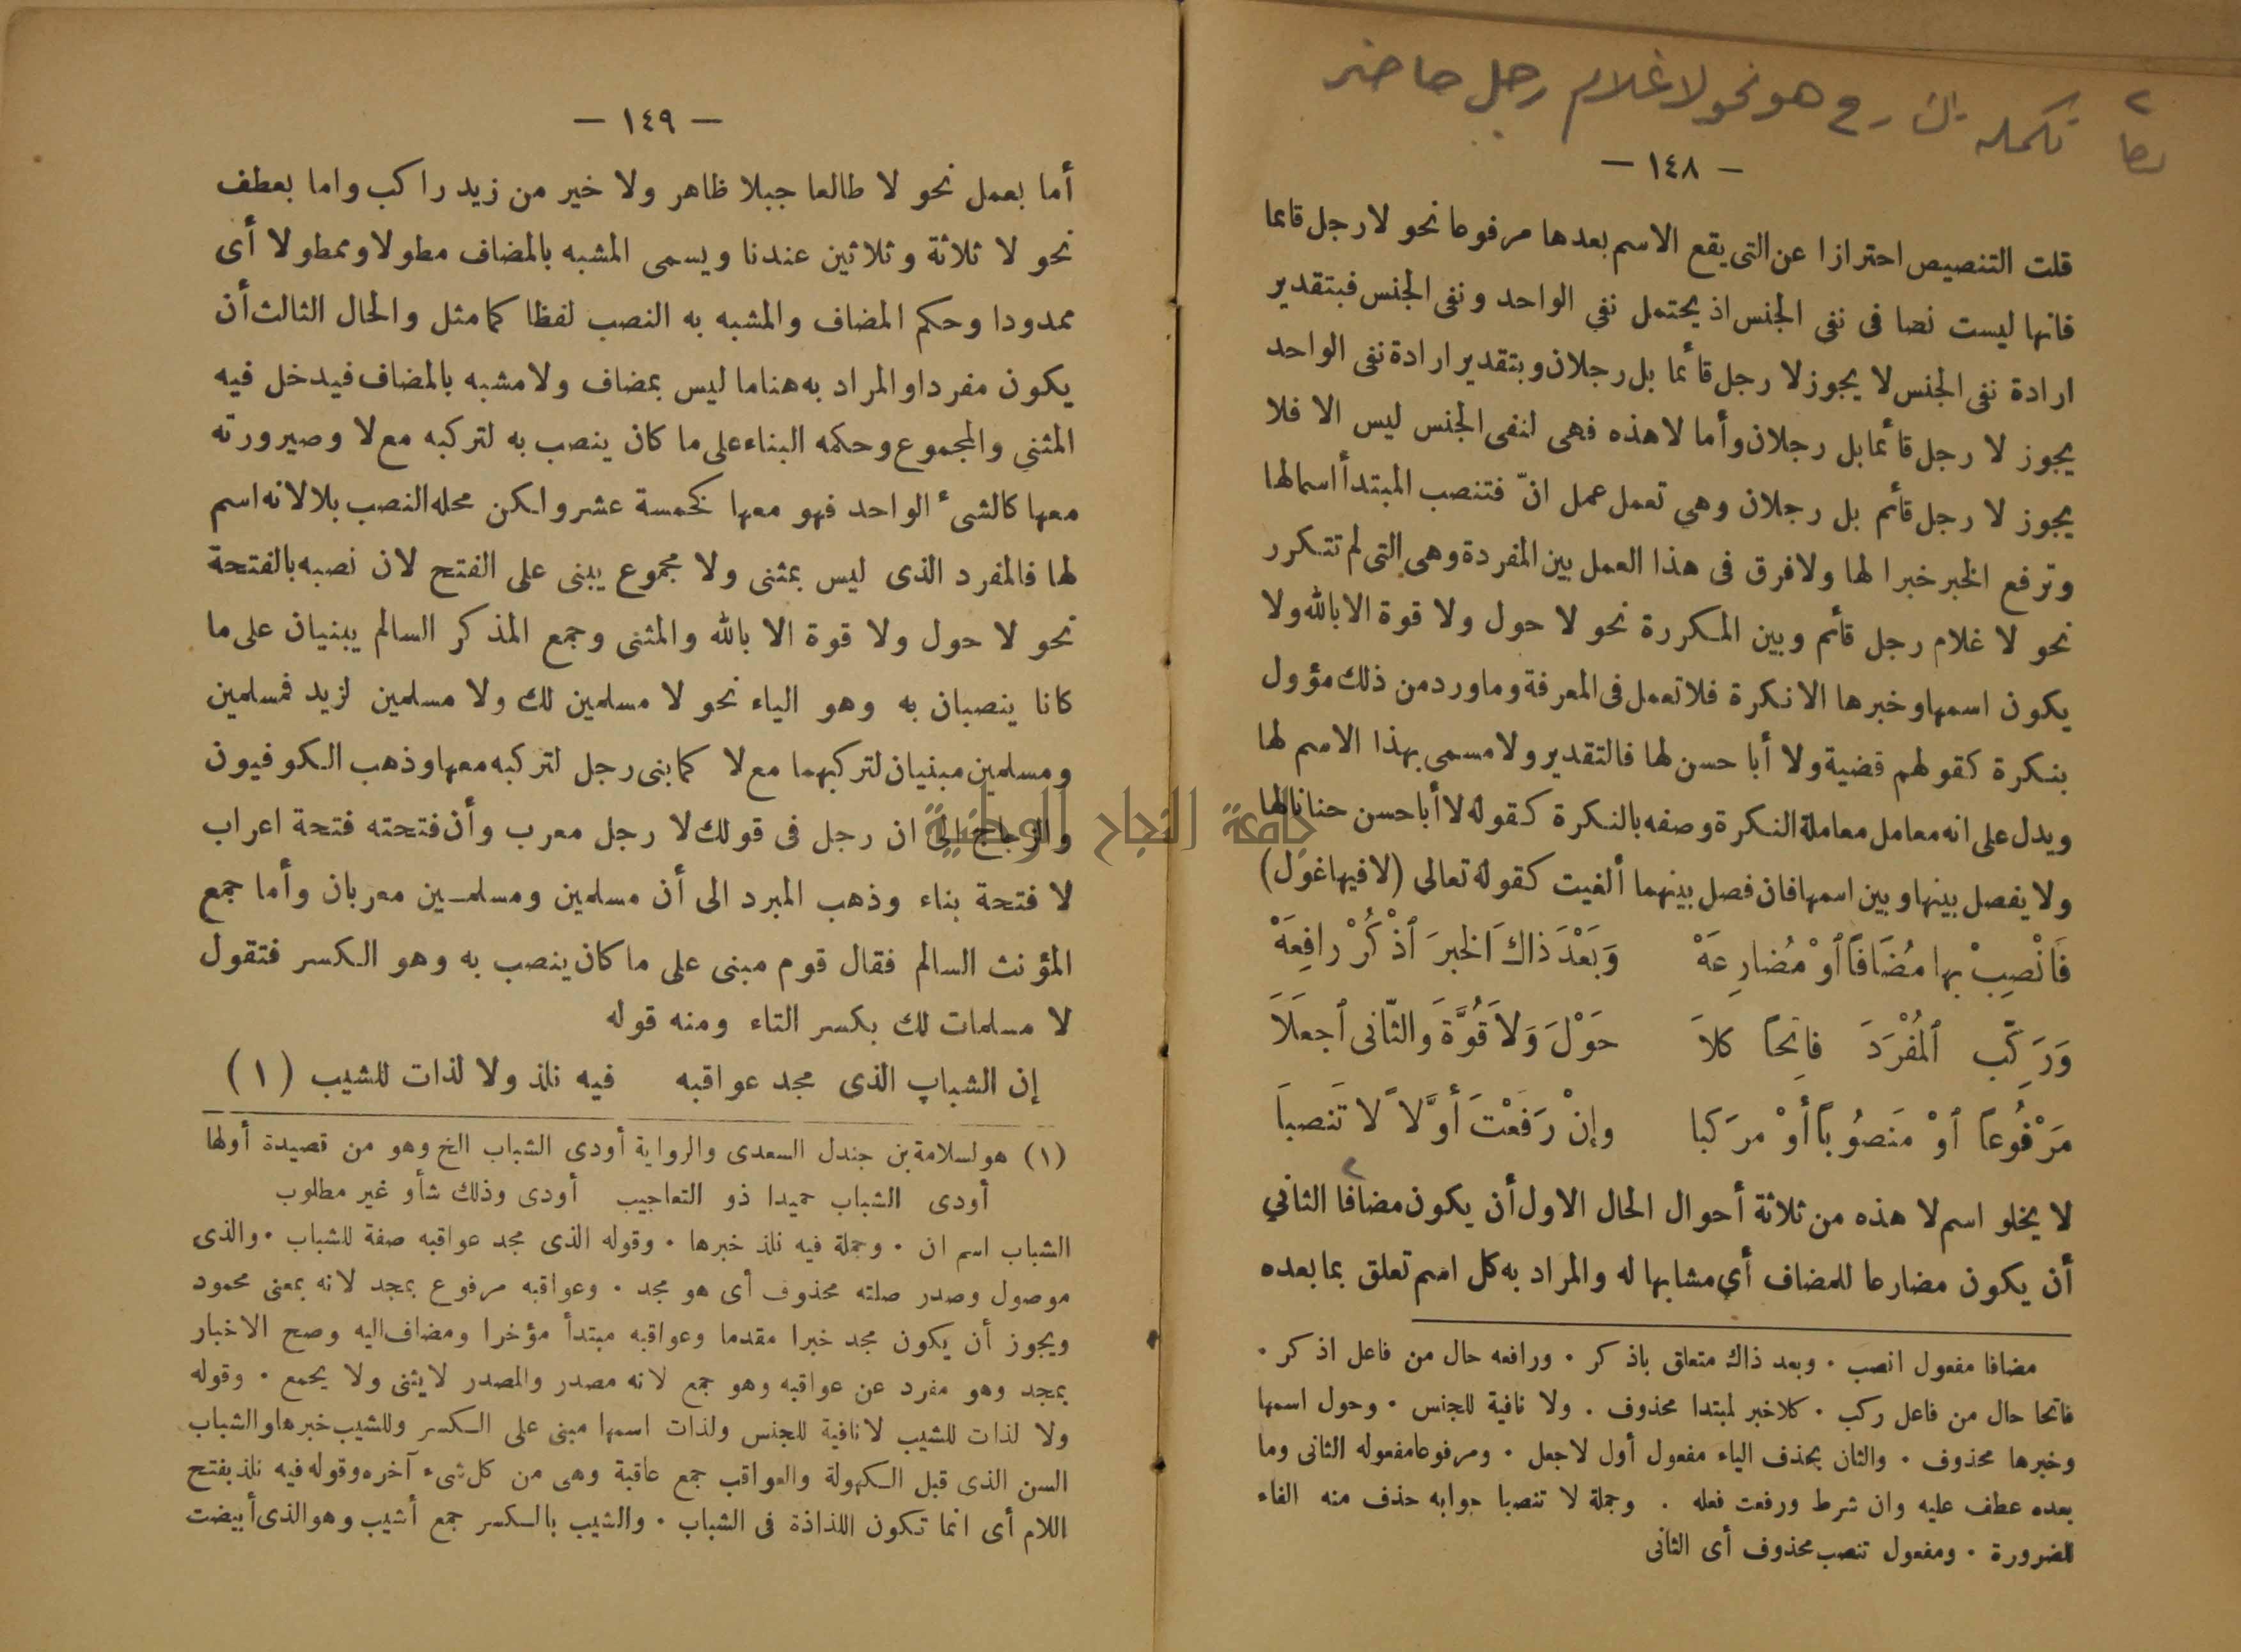 هو نحو لا غلام رجل حاضر
— ١٤٨ —
قلت التنصيص احترازا عن التى يقع الاسم بعدها مرفوعا نحو لا رجل قائما
فانها ليست نصا فى نفى الجنس اذ يحتمل نفي الواحد ونفى الجنس فبتقدير
ارادة نفى الجنس لا يجوز لا رجل قائما بل رجلان وبتقدير ارادة نفى الواحد
يجوز لا رجل قائما بل رجلان وأما لا هذه فهى لنفى الجنس ليس الا فلا
يجوز لا رجل قائم بل رجلان وهي تعمل عمل انّ فتنصب المبتدأ اسما لها
وترفع الخبر خبرا لها ولا فرق فى هذا العمل بين المفردة وهى التى لم تتكرر
نحو لا غلام رجل قائم وبين المكررة نحو لا حول ولا قوة الا بالله ولا
يكون اسمها وخبرها الا نكرة فلا تعمل فى المعرفة وما ورد من ذلك مؤول
بنكرة كقولهم قضية ولا أبا حسن لها فالتقدير ولا مسمى بهذا الاسم لها
ويدل على انه معامل معاملة النكرة وصفه بالنكرة كقوله لا أبا حسن حنانا لها
ولا يفصل بينها وبين اسمها فان فصل بينهما ألغيت كقوله تعالى (لا فيها غول)
فَانْصِبْ بها مُضَافًا أوْ مُضارِعَهْ وَبَعْدَ ذاكَ الخبرَ اذْكُرْ رافِعَهْ
وَرَكِّب المُفْرَدَ فاتِحًا كلاَ حَوْلَ وَلاَ قُوَّةَ والثّانى اجعَلاَ
مَرْفُوعًا أوْ مَنصُوبًا أوْ مركبا وإنْ رَفَعْتَ أوَّلاً لا تَنصبَا
لا يخلو اسم لا هذه من ثلاثة أحوال الحال الاول أن يكون مضافا الثاني
أن يكون مضارعا للمضاف أي مشابها له والمراد به كل اسم تعلق بما بعده
مضافا مفعول انصب . وبعد ذاك متعلق باذكر . ورافعه حال من فاعل اذكر .
فاتحا حال من فاعل ركب . كلا خبر لمبتدا محذوف . ولا نافية للجنس . وحول اسمها
وخبرها محذوف . والثان بحذف الياء مفعول أول لاجعل . ومرفوعا مفعوله الثانى وما
بعده عطف عليه وان شرط ورفعت فعله . وجملة لا تنصبا جوابه حذف منه الفاء
للضرورة . ومفعول تنصب محذوف أى الثانى
— ١٤٩ —
أما بعمل نحو لا طالعا جبلا ظاهر ولا خير من زيد راكب واما بعطف
نحو لا ثلاثة وثلاثين عندنا ويسمى المشبه بالمضاف مطولا وممطولا أى
ممدودا وحكم المضاف والمشبه به النصب لفظا كما مثل والحال الثالث أن
يكون مفردا والمراد به هنا ما ليس بمضاف ولا مشبه بالمضاف فيدخل فيه
المثني والمجموع وحكمه البناء على ما كان ينصب به لتركبه مع لا وصيرورته
معها كالشىء الواحد فهو معها كخمسة عشر ولكن محله النصب بلا لانه اسم
لها فالمفرد الذى ليس بمثنى ولا مجموع يبنى على الفتح لان نصبه بالفتحة
نحو لا حول ولا قوة الا بالله والمثنى وجمع المذكر السالم يبنيان على ما
كانا ينصبان به وهو الياء نحو لا مسلمين لك ولا مسلمين لزيد فمسلمين
ومسلمين مبنيان لتركبهما مع لا كما بنى رجل لتركبه معها وذهب الكوفيون
والزجاج الى ان رجل فى قولك لا رجل معرب وأن فتحته فتحة اعراب
لا فتحة بناء وذهب المبرد الى أن مسلمين ومسلمين معربان وأما جمع
المؤنث السالم فقال قوم مبنى على ما كان ينصب به وهو الكسر فتقول
لا مسلمات لك بكسر التاء ومنه قوله
إن الشباب الذى مجد عواقبه فيه نلذ ولا لذات للشيب (١)
(١) هو لسلامة بن جندل السعدى والرواية أودى الشباب الخ وهو من قصيدة أولها
أودى الشباب حميدا ذو التعاجيب أودى وذلك شأو غير مطلوب
الشباب اسم ان . وجملة فيه نلذ خبرها . وقوله الذى مجد عواقبه صفة للشباب . والذى
موصول وصدر صلته محذوف أى هو مجد . وعواقبه مرفوع بمجد لانه بمعنى محمود
ويجوز أن يكون مجد خبرا مقدما وعواقبه مبتدأ مؤخرا ومضاف اليه وصح الاخبار
بمجد وهو مفرد عن عواقبه وهو جمع لانه مصدر والمصدر لا يثنى ولا يجمع . وقوله
ولا لذات للشيب لا نافية للجنس ولذات اسمها مبنى على الكسر وللشيب خبرها والشباب
السن الذى قبل الكهولة والعواقب جمع عاقبة وهى من كل شىء آخره وقوله فيه نلذ بفتح
اللام أى انما تكون اللذاذة فى الشباب . والشيب بالكسر جمع أشيب وهو الذى أبيضت
جامعة النجاح الوطنية